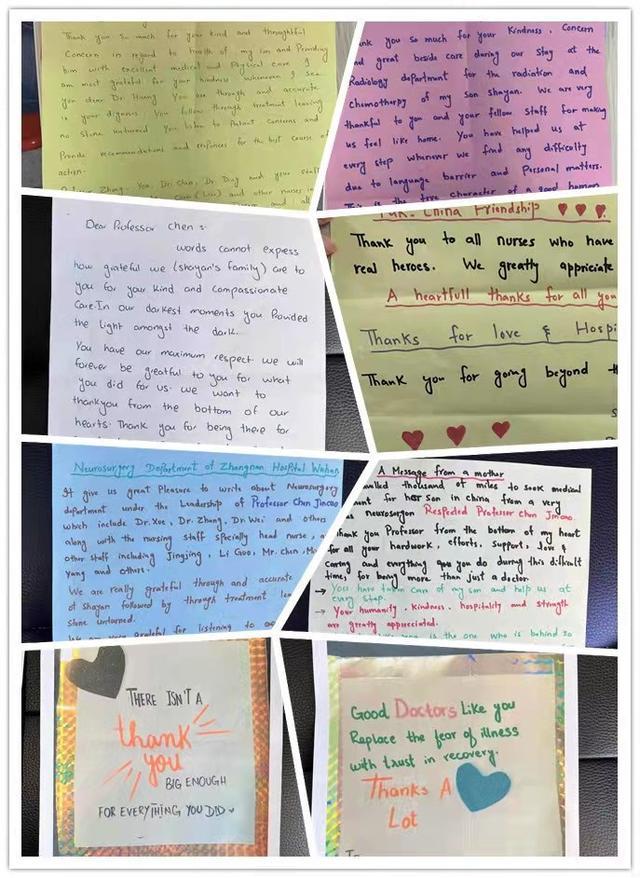 Thank you so much for your kind and throughtful
Concern in regard to health of my son and Providing
him with excellent medical and Physical care. I
am most grateful for your kindness whenever I see
you dear Dr. Huang You are through and accurate
in your diagnoses You follow through treatment leaving
no stone unturned You listen to Patient concerns and
Provide recommendations and for the best course of
action.
Zhang, Yoa, Dr. Chan, Dr. Ding and your staff
and other nurses in
ank you so much for your Kindness, Concern
nd great beside care during our stay at the
Radiology department for the radiation and
Chemothrepy of my son Shayan. We are very
thankful to you and your fellow staff for making
us feel like home. You have helped us at
every step whenever we find any difficulty
due to language barrier and Personal matters.
This is the true character of a good human
Dear Professor Chen :
words cannot express
how grateful we (shayan's family) are to
you for your kind and compassionate
Care. In our darkest moments you Provided
the light amongst the dark.
You have our maximum respect we will
forever be greatful to you for what
you did for us. we want to
thankyou from the bottom of our
hearts. Thank you for being there for
Pak. China Friendship
Thank you to all nurses who have
real heroes. We greatly appriciate
A heartfull thanks for all you
Thanks for love & Hospi
Thank you for going beyond th
s
Neurosurgery Department of Zhangnan Hospital Wuhan
It give us great Pleasure to write about Neurosurgery
department under the Leadership of Professor Chen Jincao
which include Dr. Yoe, Dr. Zhang, Dr. Wei and others
along with the nursing staff specially head nurse, a
other staff including Jingjing, Li Guo, Mr. Chen, Mi
Yang and others.
We are really grateful through and accurate
of Shayan followed by through treatment lea
stone unturned.
We are very grateful for listening to
A Message from a mother
walked thousand of miles to seek medical
ment for her son in china from a very
Neurosurgeon Respected Professor Chen Jincao.
thank you Professor from the bottom of my heart
for all your hardwork, efforts, support, love &
caring and everything you do during this difficult
time, for being more than just a doctor.
→ You have taken care of my son and help us at
every step.
→ Your humanity, Kindness, hospitality and strength
are greatly appreciated.
is the one who is behind so
THERE ISN'T A
thank
you
BIG ENOUGH
FOR EVERYTHING YOU DID
Good Doctors Like you
Replace the fear of illness
with trust in recovery.
Thanks A
Lot
To